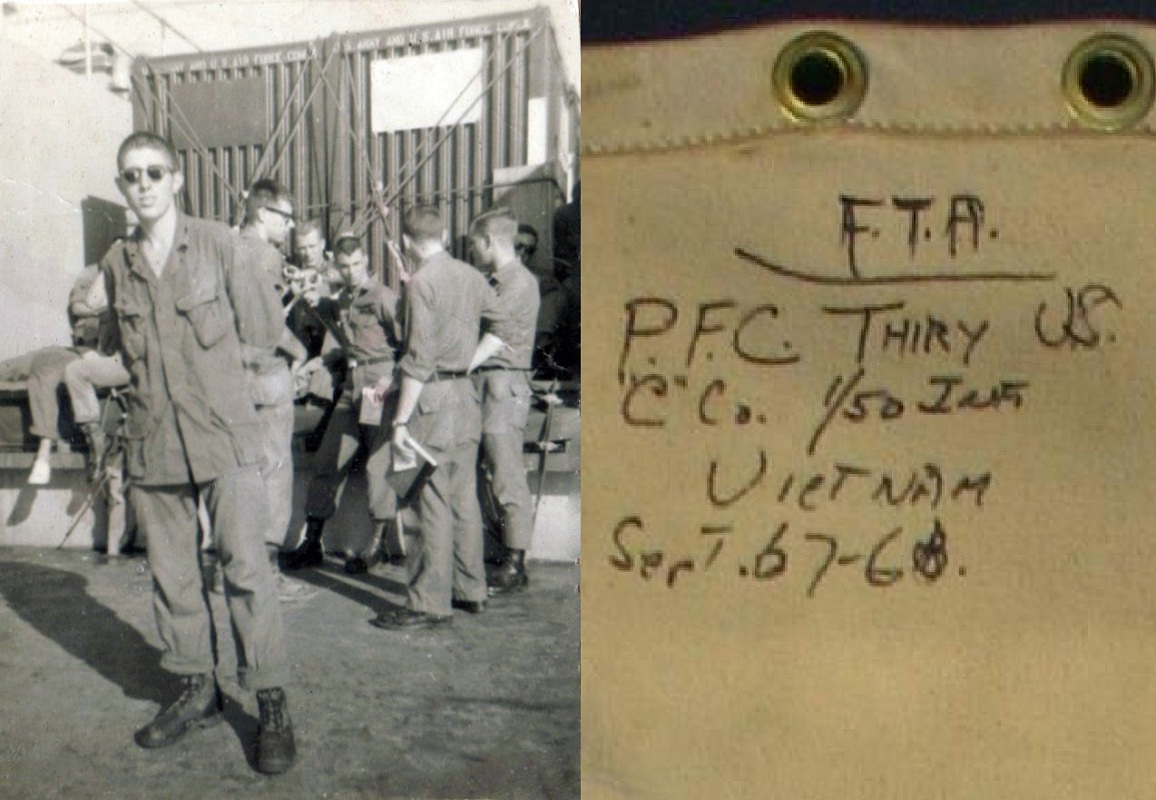 ARMY AND U.S. AIR FORCE
U.S. ARMY AND U.S. AIR FORCE
F.T.A.
P.F.C. THIRY US.
"C" Co. 1/50 INF
VIETNAM
SEPT. 67-68.